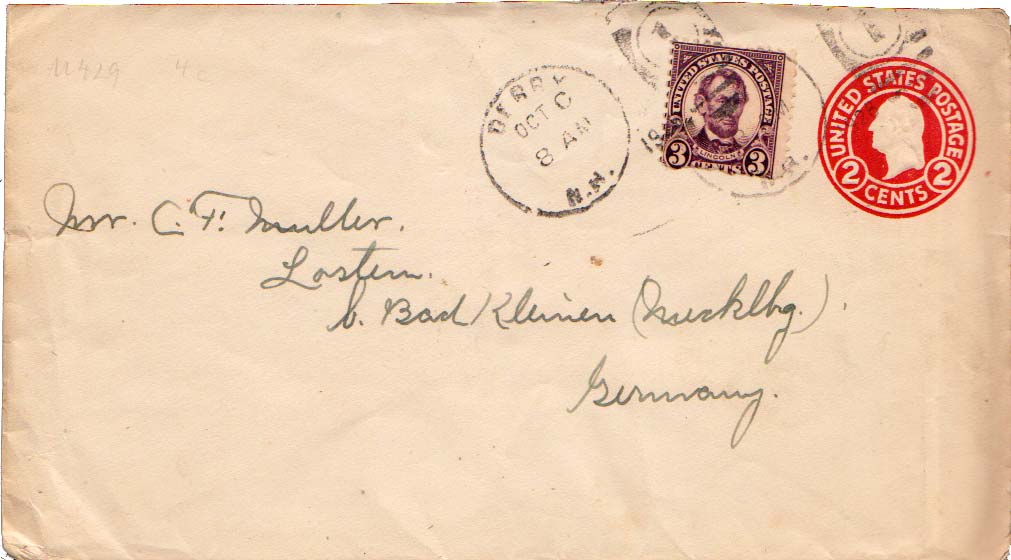 U429 4c
DERRY
OCT
8 AM
N.H.
UNITED STATES POSTAGE
LINCOLN
3 CENTS 3
N.H.
UNITED STATES POSTAGE
2 CENTS 2
Mr. C. F. Muller.
Lostem.
b. Bad Kleinen (Mecklbg.).
Germany.